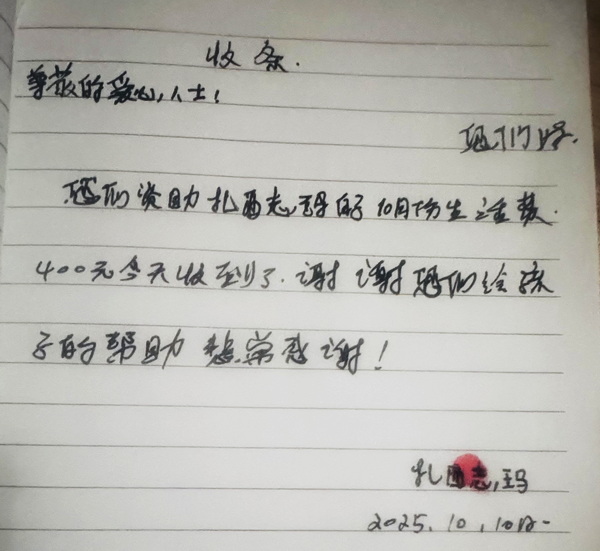 收条.
尊敬的爱心人士!
恩们好.
恩们资助扎西志玛的10月份生活费.
400元今天收到了.谢谢恩们给孩
子的帮助 非常感谢!
扎西志玛
2025.10.10日